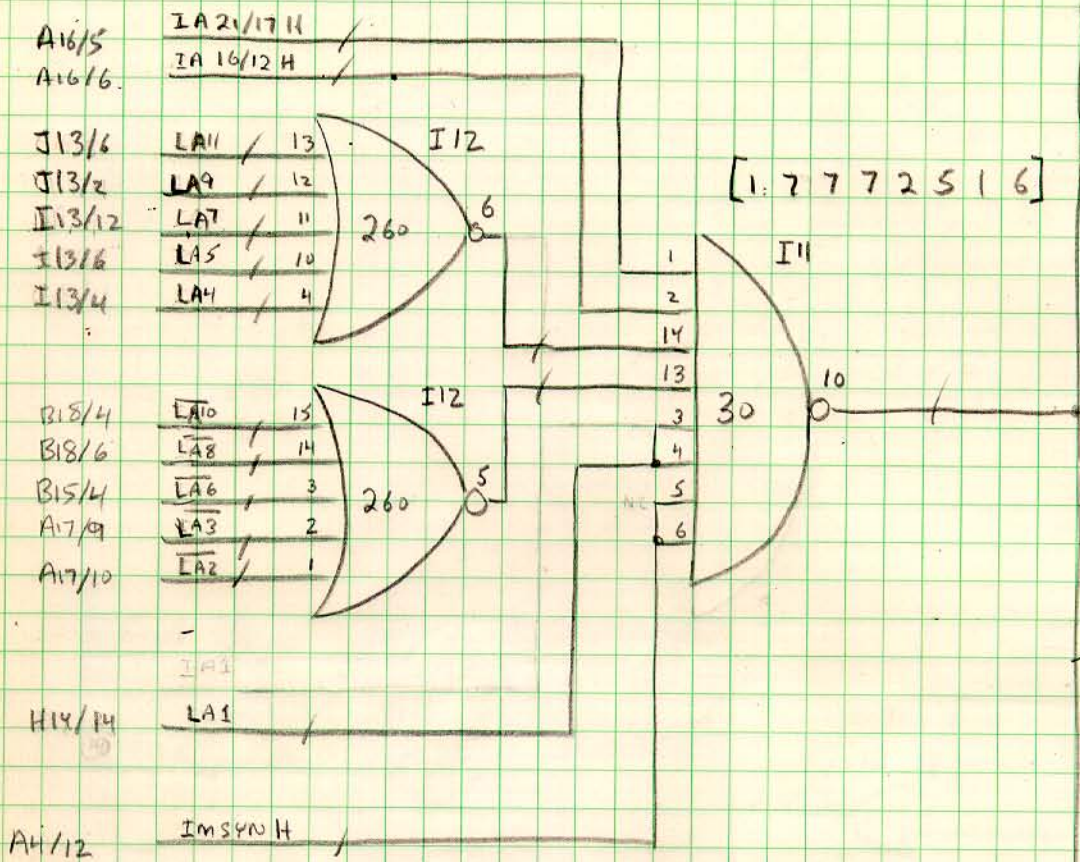 A16/5 IA 21/17 H
A16/6. IA 16/12 H
J13/6 LA11 13
J13/2 LA9 12
I13/12 LA7 11
I13/6 LA5 10
I13/4 LA4 4
I12
260
6
[1 7 7 7 2 5 1 6]
I11
1
2
14
13
3
4
5
6
30
10
NC
I12
B18/4 L̅A̅1̅0̅ 15
B18/6 L̅A̅8̅ 14
B15/4 L̅A̅6̅ 3
A17/9 L̅A̅3̅ 2
A17/10 L̅A̅2̅ 1
260
5
IA1
H14/14 LA1
A4/12 IMSYN H